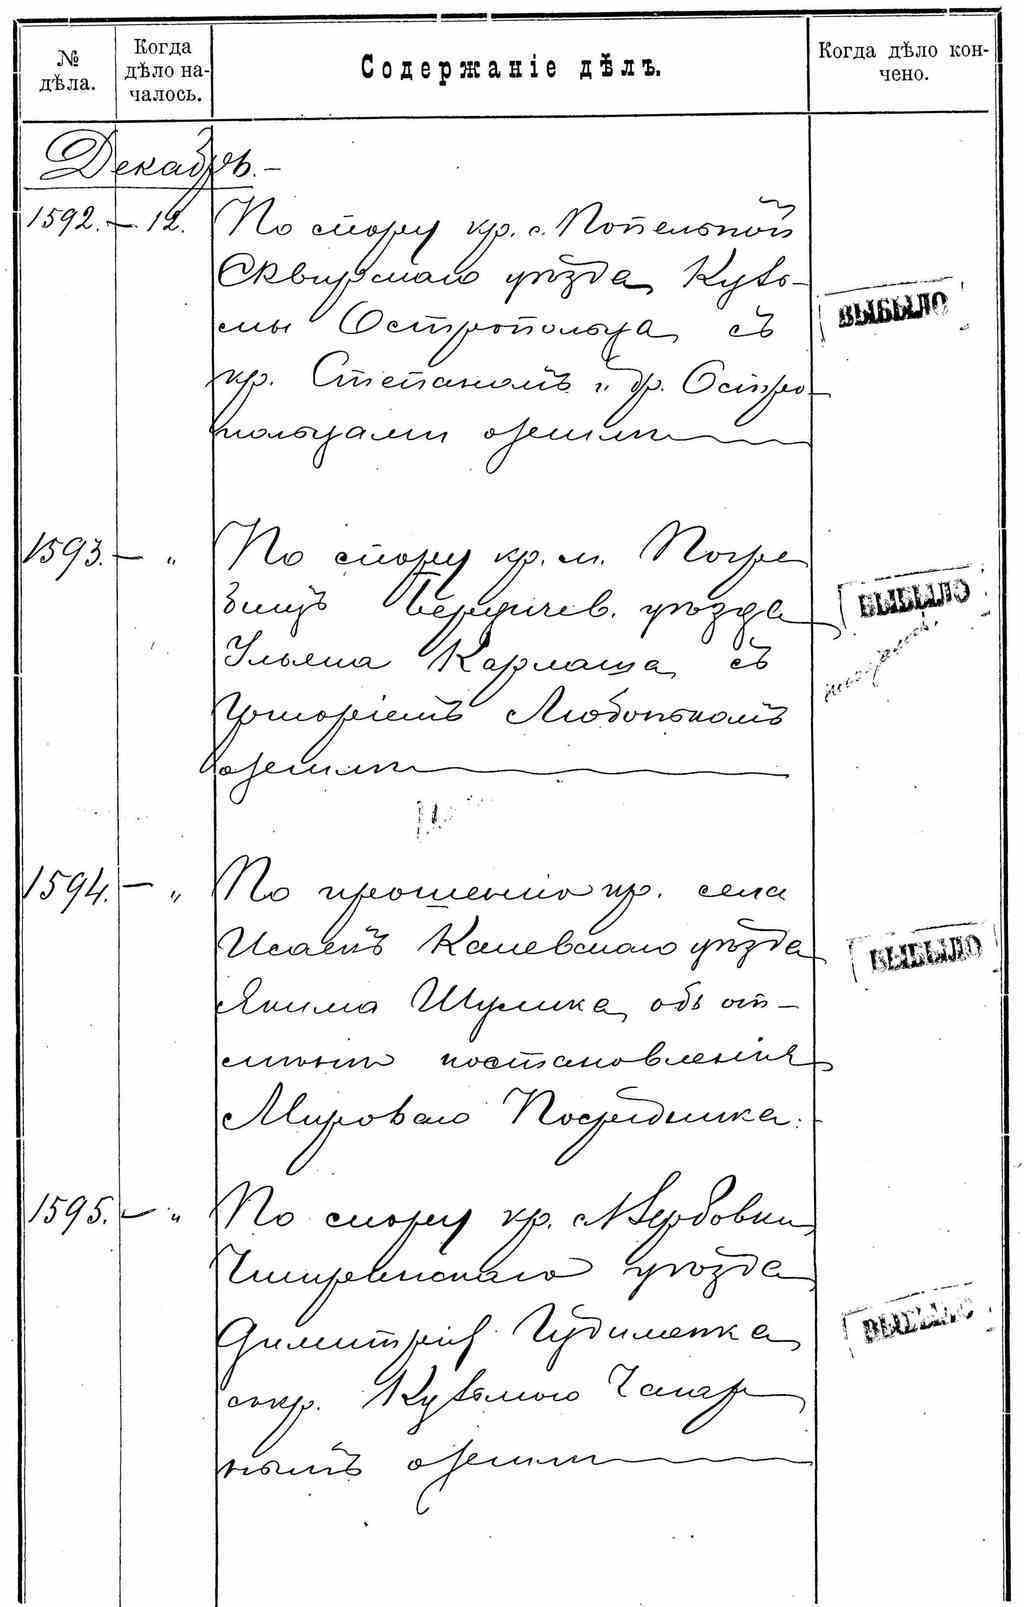 № дѣла.
Когда дѣло началось.
Содержаніе дѣлъ.
Когда дѣло кончено.
Декабрь.-
1592.-12. По спору кр. с. Попельной
Сквирскаго уѣзда Кузь-
мы Остропольца съ
кр. Степаномъ и др. Остро
польцами о землѣ
ВЫБЫЛО
1593.-„ По спору кр. м. Погре
бищъ Бердичев. уѣзда
Ульяна Карлаша съ
Григоріемъ
о землѣ
ВЫБЫЛО
1594.-„ По прошенію кр. села
Исаекъ Каневскаго уѣзда
Якима Шулика объ от-
мѣнѣ постановленія
Мироваго Посредника.-
ВЫБЫЛО
1595.-„ По спору кр. с. Вербовки
Чигиринскаго уѣзда
Димитрія Гудименка
съ кр. Кузьмою
нымъ о землѣ
ВЫБЫЛО